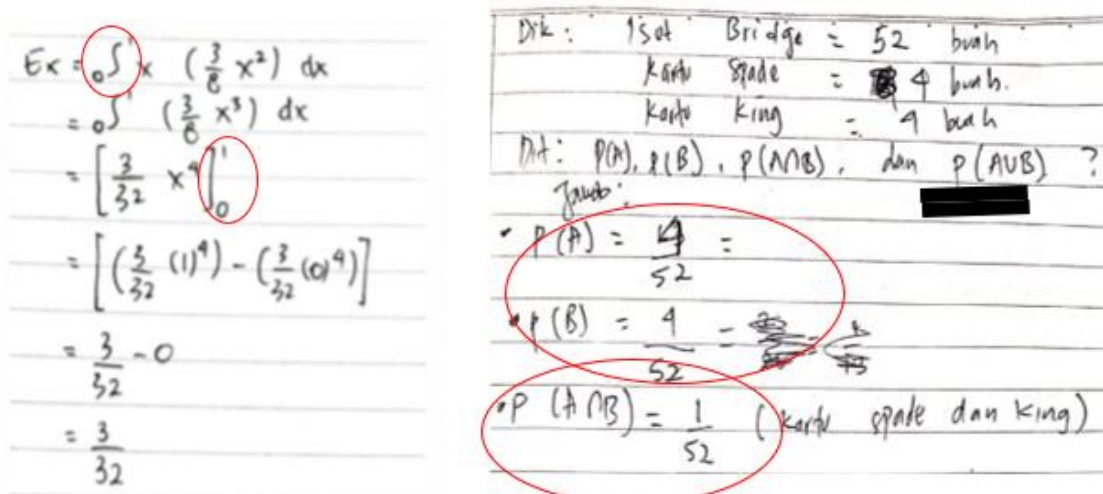 Ex = ₀∫¹ x (3/8 x²) dx
= ₀∫¹ (3/8 x³) dx
= [3/32 x⁴]₀¹
= [(3/32 (1)⁴) - (3/32 (0)⁴)]
= 3/32 - 0
= 3/32
Dik : 1 set Bridge = 52 buah
Kartu Spade = 4 buah.
Kartu King = 4 buah
Dit : P(A), P(B), P(A∩B), dan P(A∪B) ?
Jawab :
• P(A) = 4/52 =
• P(B) = 4/52 =
• P(A∩B) = 1/52 (kartu spade dan king)